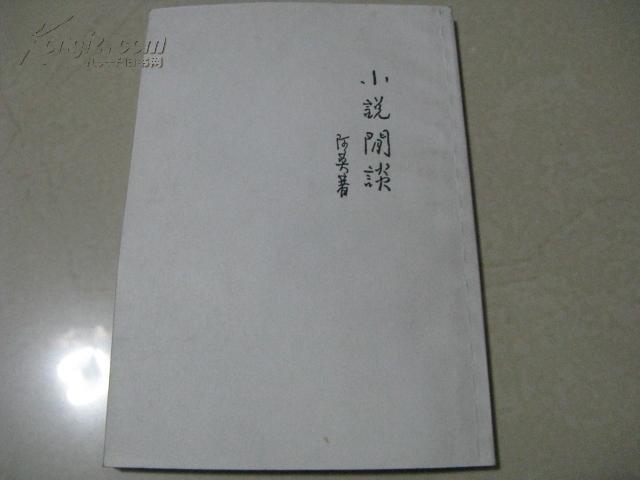 小說閒談
阿英著
Kongfz.com
孔夫子旧书网